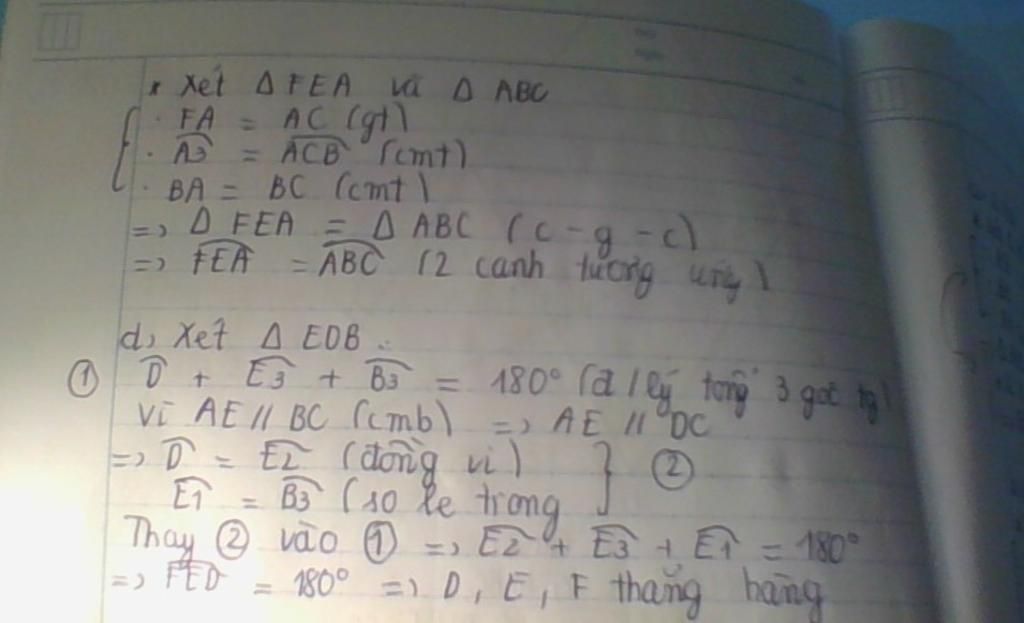 * Xét Δ FEA và Δ ABC
· FA = AC (gt)
· A3 = ACB (cmt)
· BA = BC (cmt)
=> Δ FEA = Δ ABC (c - g - c)
=> FEA = ABC (2 canh tương ứng)
d, Xét Δ EDB.
① D + E3 + B3 = 180° (đ/lý tổng 3 góc tg)
Vì AE // BC (cmb) => AE // DC
=> D = E2 (đồng vi) } ②
E1 = B3 (so le trong
Thay ② vào ① => E2 + E3 + E1 = 180°
=> FED = 180° => D, E, F thẳng hàng